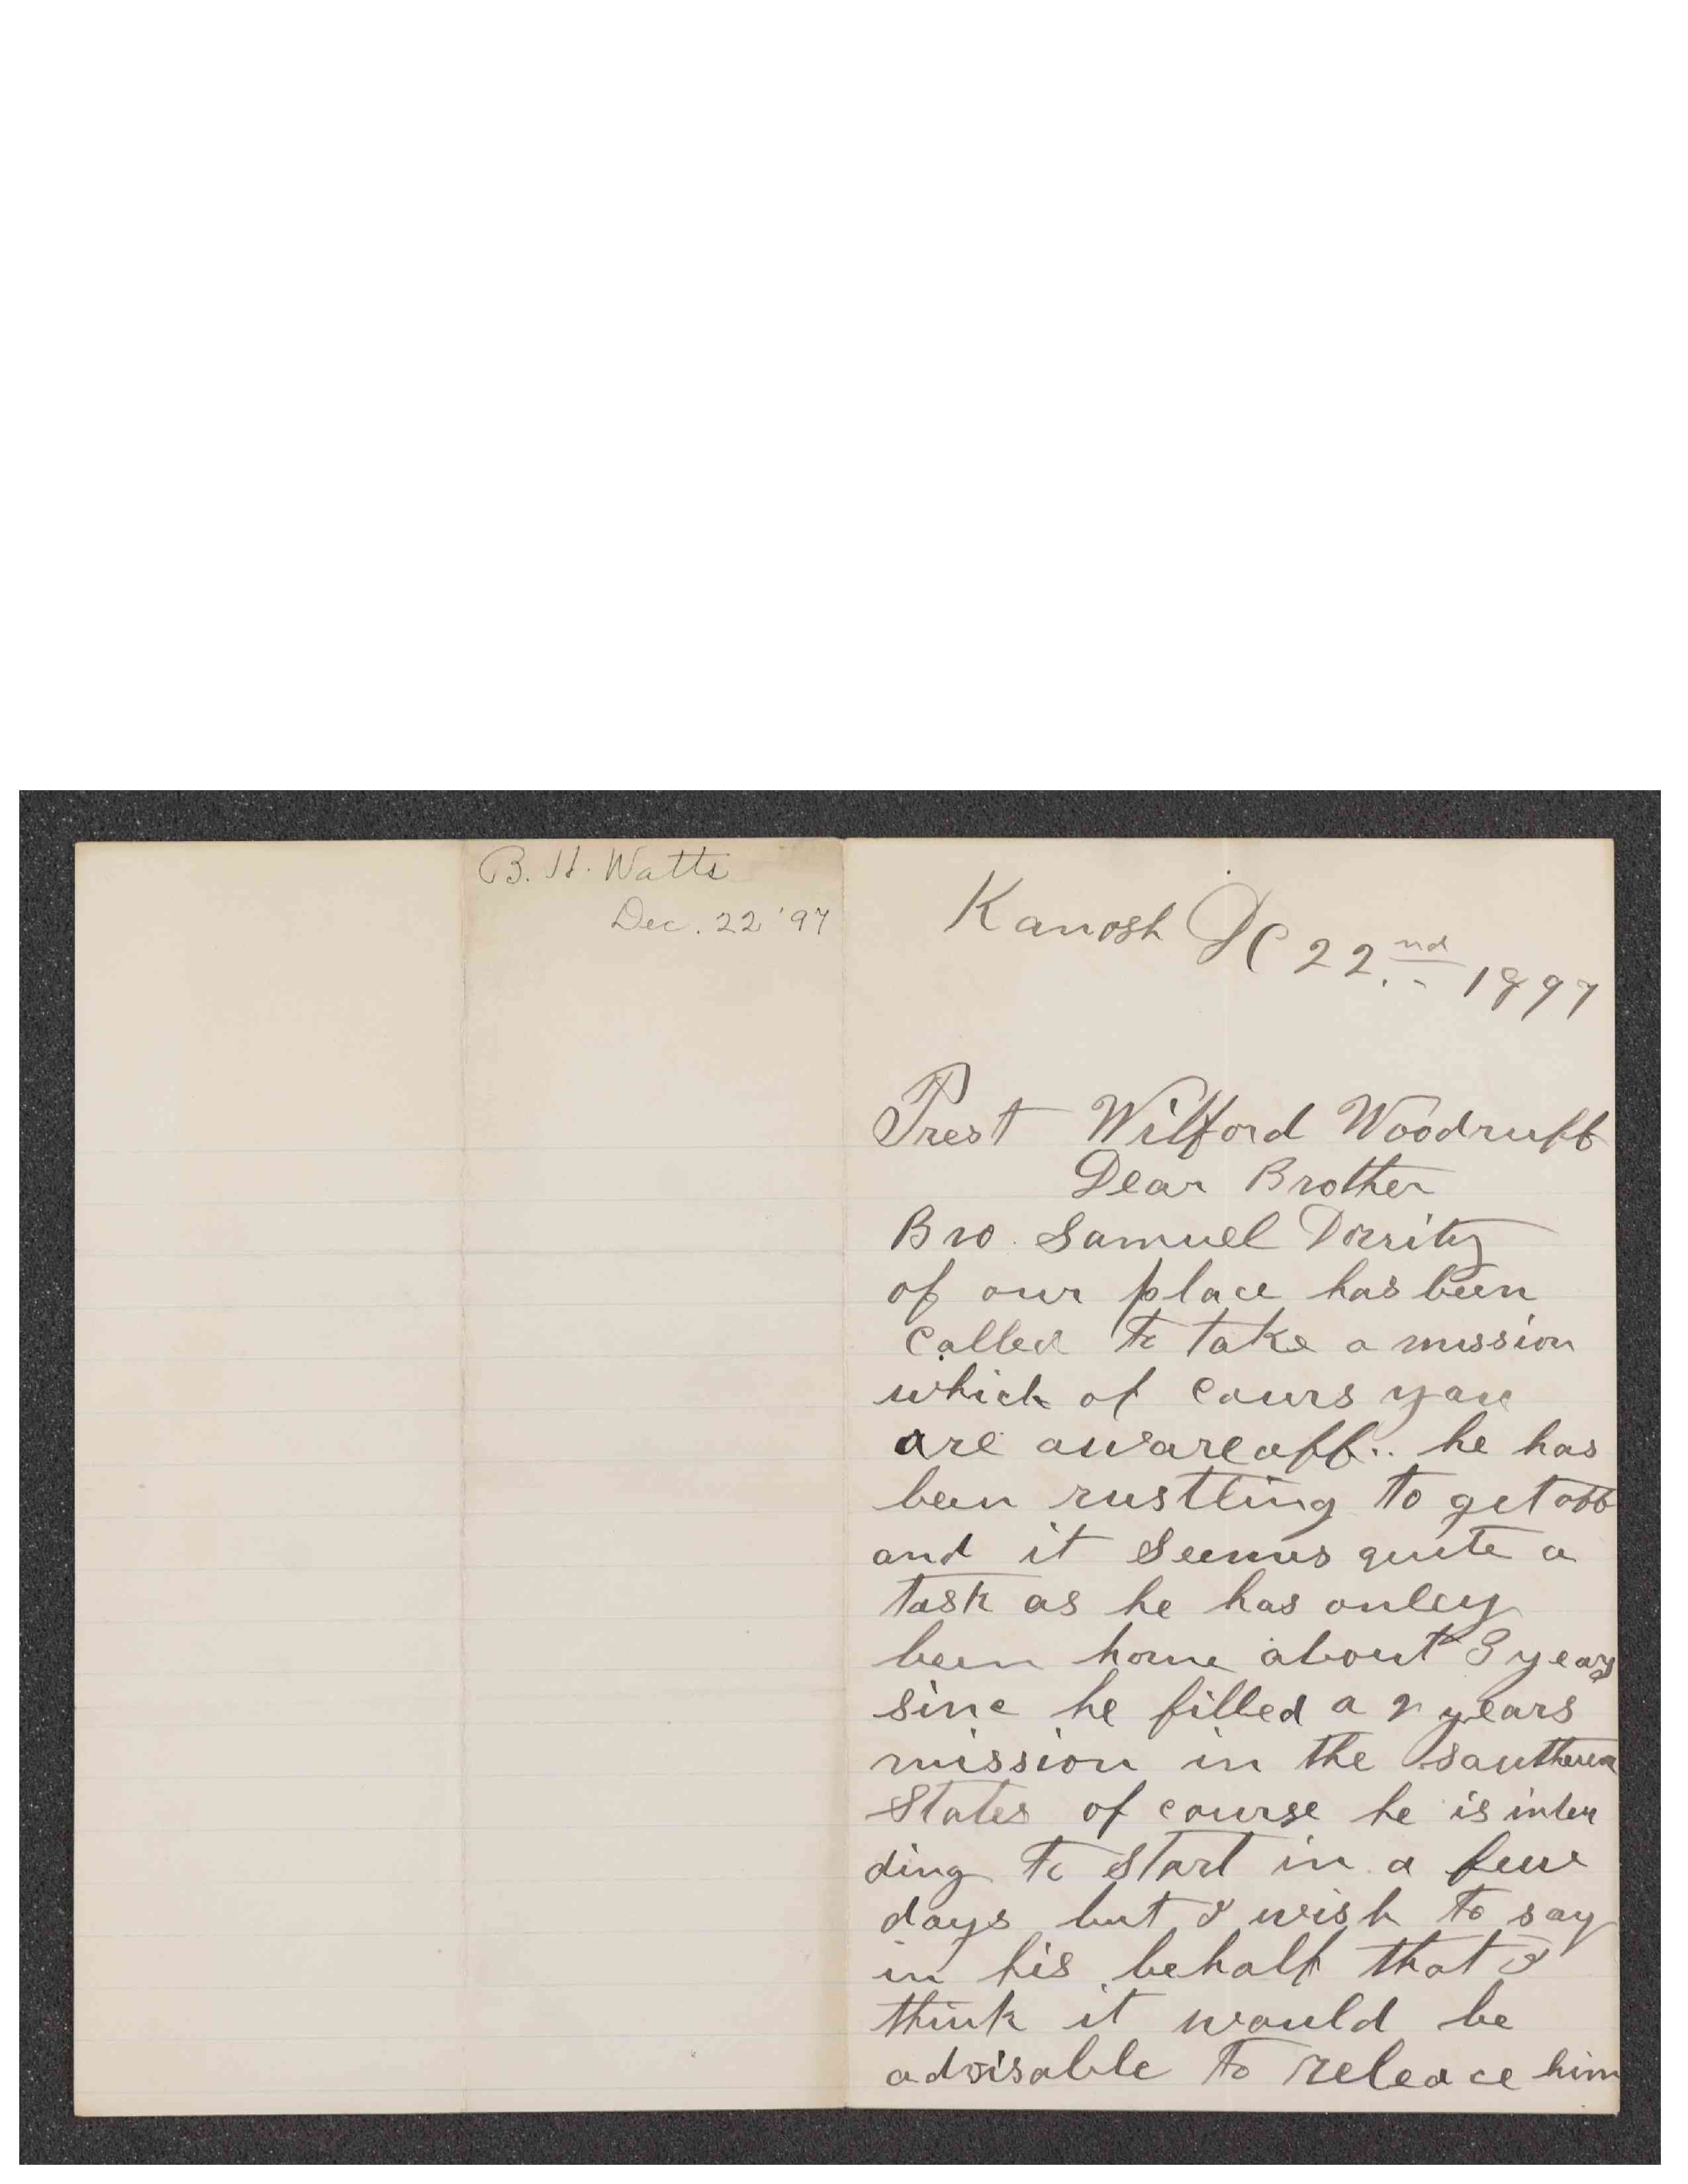 B. H. Watts
Dec. 22 '97
Kanosh Dc 22.nd 1897
Prest Wilford Woodruff
Dear Brother
Bro. Samuel Dorrity
of our place has been
called to take a mission
which of cours you
are awareoff.. he has
been rustling to get off
and it seems quite a
task as he has onley
been home about 3 years
sinc he filled a 2 years
mission in the southeren
States of course he is inten
ding to start in a few
days but I wish to say
in his behalf that I
think it would be
advisable to releace him